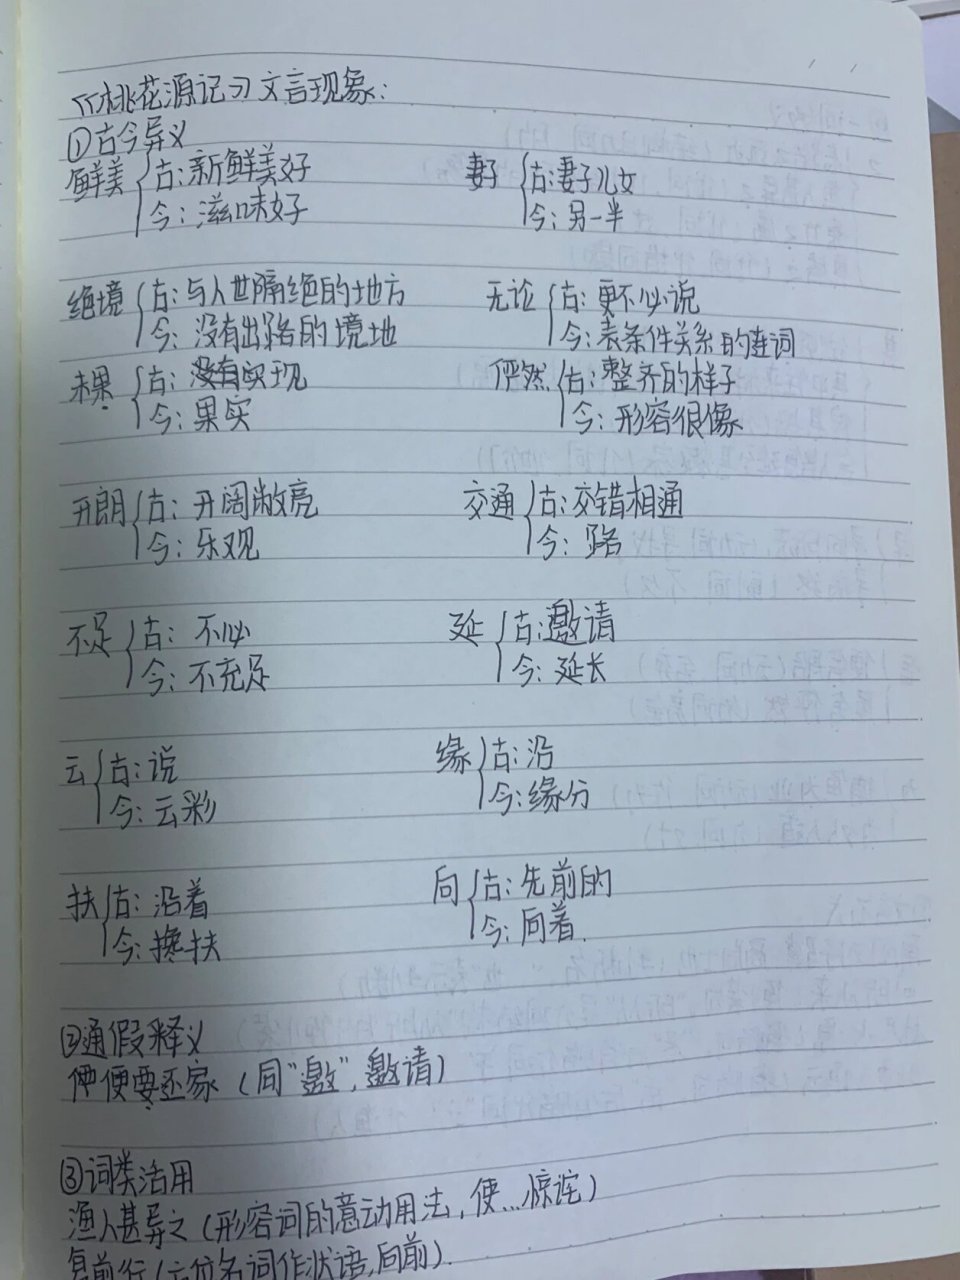 《桃花源记》文言现象:
①古今异义
鲜美 古:新鲜美好 妻子 古:妻子儿女
今:滋味好 今:另一半
绝境 古:与人世隔绝的地方 无论 古:更不必说
今:没有出路的境地 今:表条件关系的连词
未果 古:没有实现 俨然 古:整齐的样子
今:果实 今:形容很像
开朗 古:开阔敞亮 交通 古:交错相通
今:乐观 今:路
不足 古:不必 延 古:邀请
今:不充足 今:延长
云 古:说 缘 古:沿
今:云彩 今:缘分
扶 古:沿着 向 古:先前的
今:搀扶 今:向着
②通假释义
便要还家(同"邀",邀请)
③词类活用
渔人甚异之(形容词的意动用法,使...惊诧)
复前行(方位名词作状语,向前)